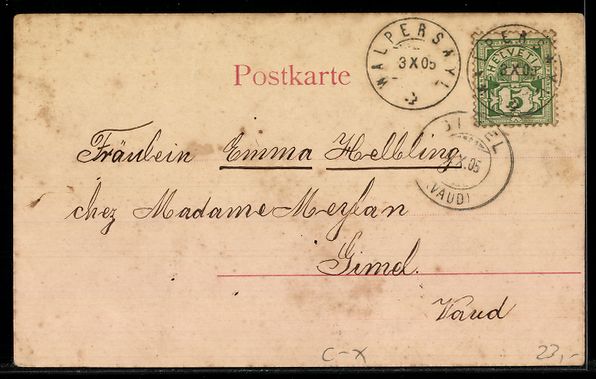 Postkarte
WALPERSWYL
3 X 05
HELVETIA
5
3 X 05
GIMEL
X.05
(VAUD)
Fräulein Emma Helbling
chez Madame Meylan
Gimel.
Vaud
C-X
23,-